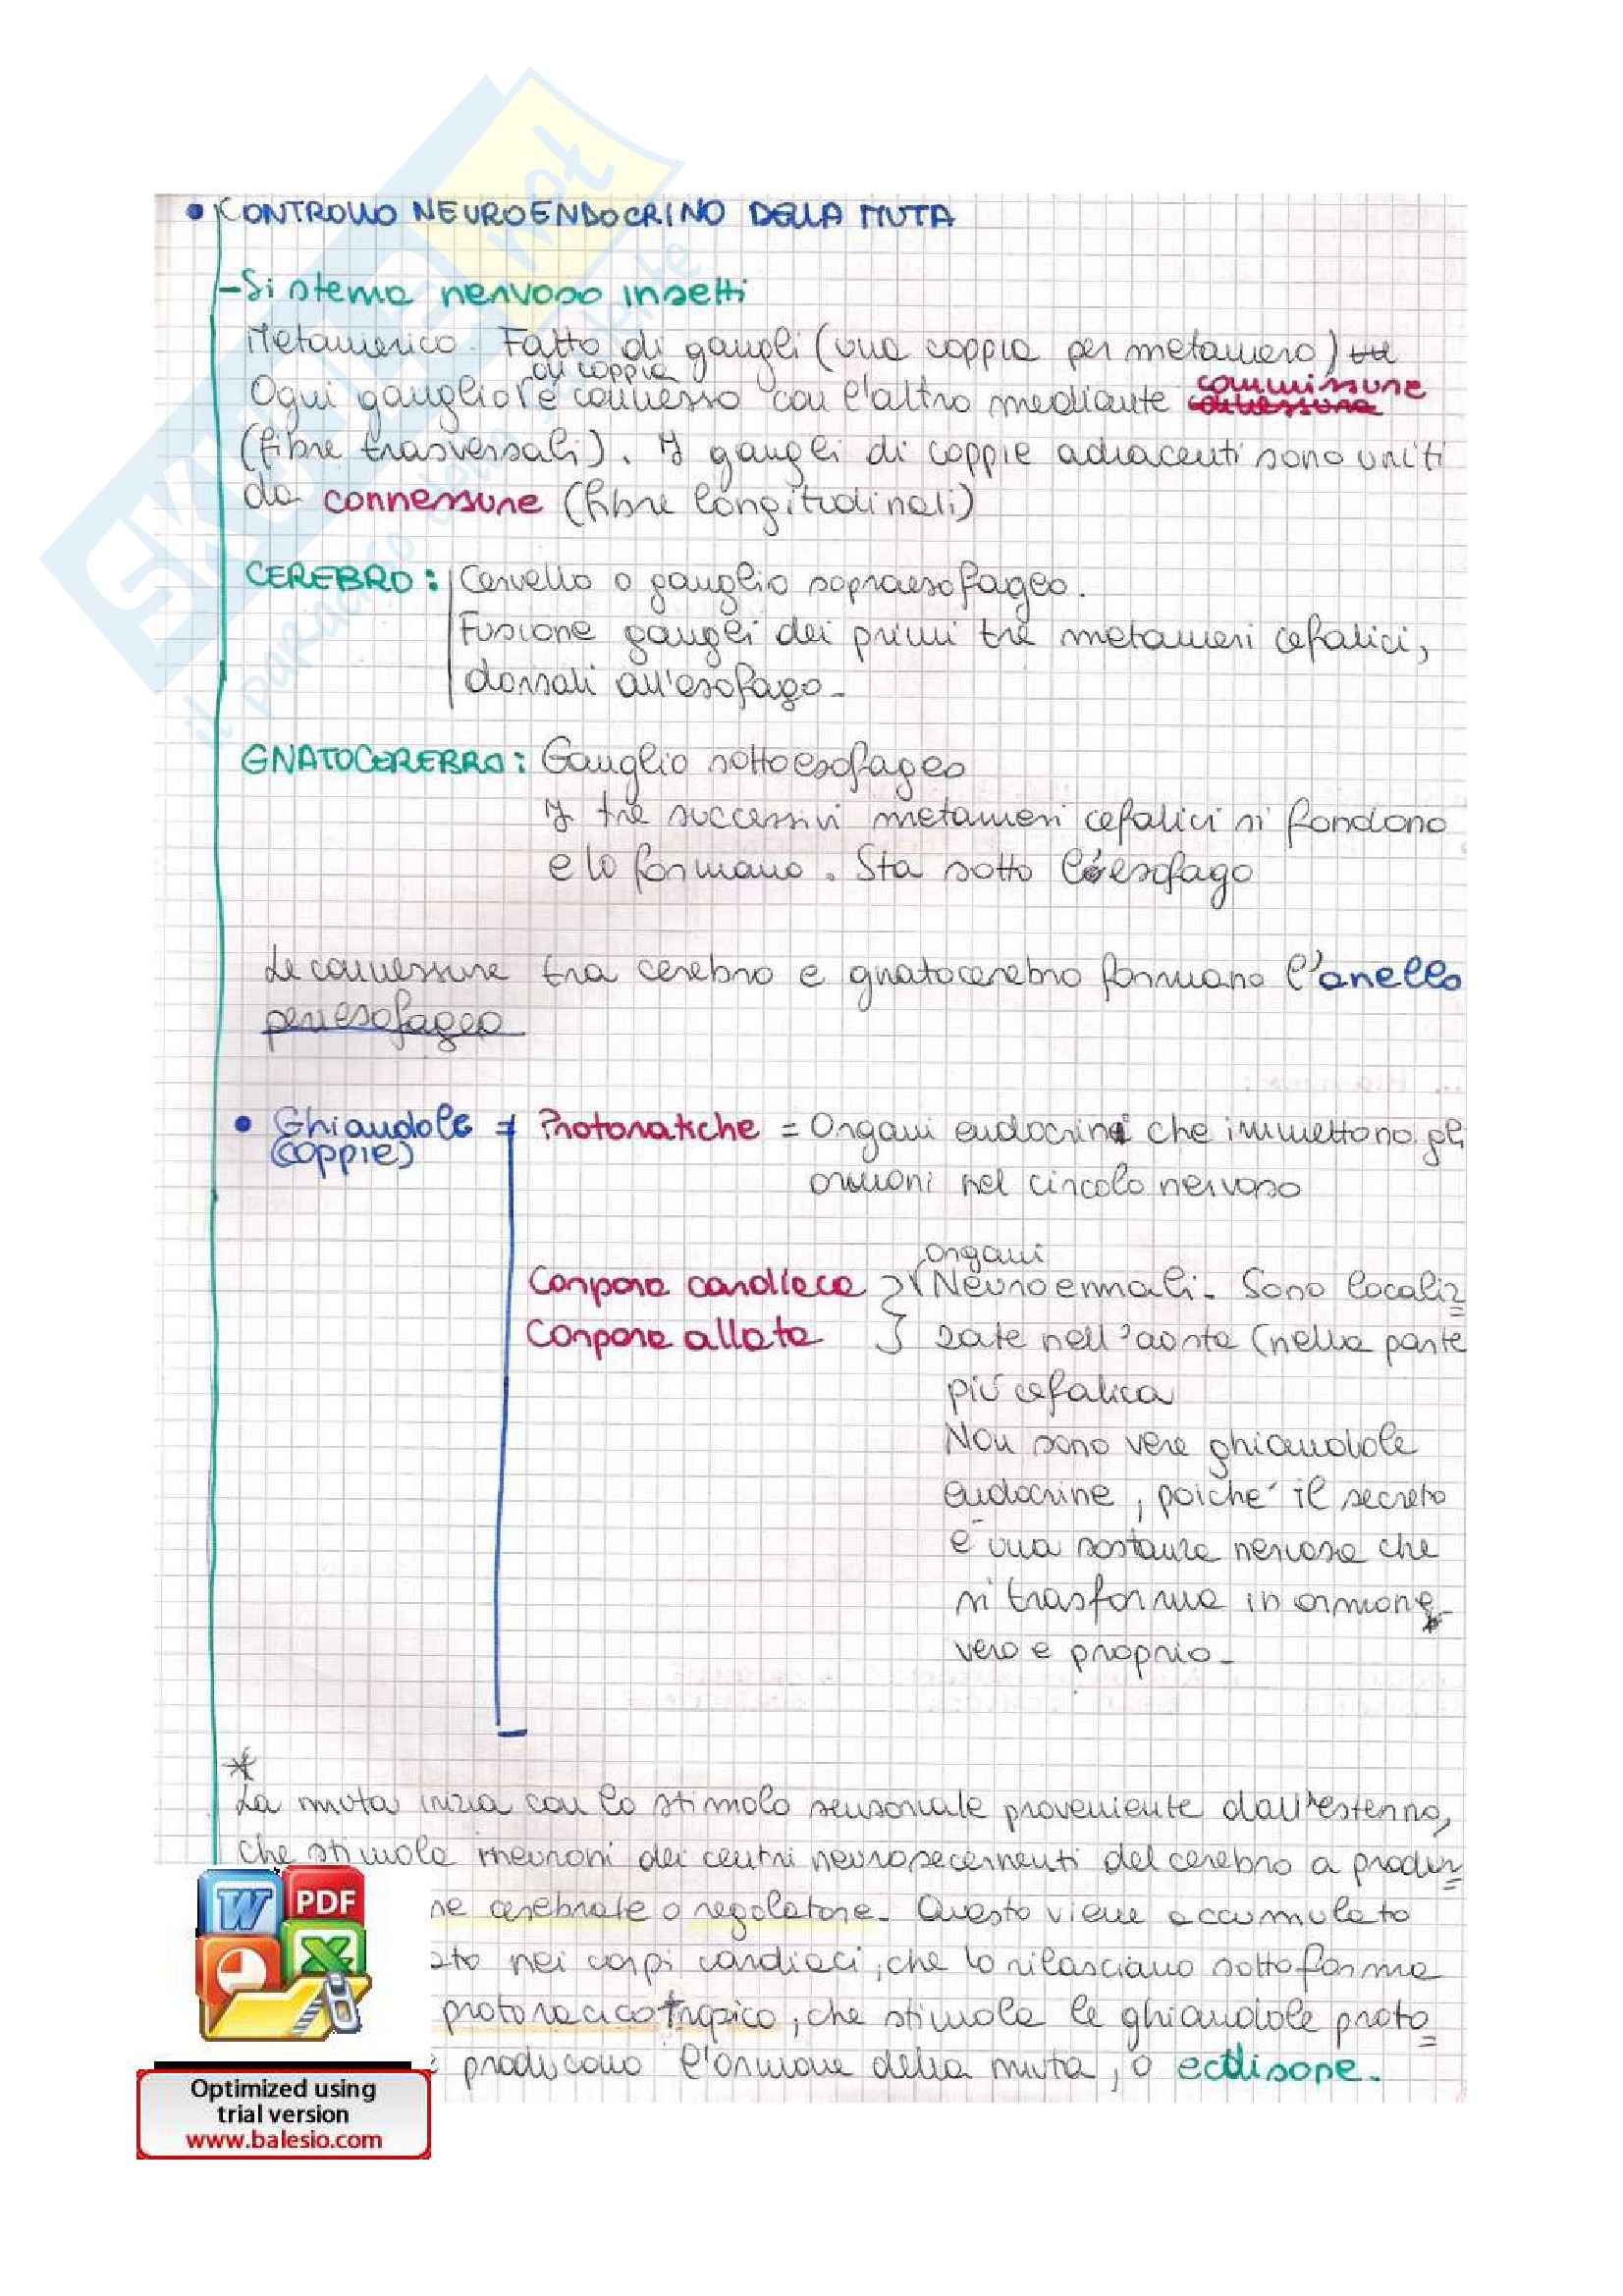 • CONTROLLO NEUROENDOCRINO DELLA MUTA
- Sistema nervoso insetti
Metamerico. Fatto di gangli (una coppia per metamero)
di coppia
commissure
Ogni ganglio è connesso con l'altro mediante connessura
(fibre trasversali). I gangli di coppie adiacenti sono uniti
da connessure (fibre longitudinali)
CEREBRO: Cervello o ganglio sopraesofageo.
Fusione gangli dei primi tre metameri cefalici,
dorsali all'esofago.
GNATOCEREBRO: Ganglio sottoesofageo
I tre successivi metameri cefalici si fondono
e lo formano. Sta sotto l'esofago
Le connessure tra cerebro e gnatocerebro formano l'anello
periesofageo
• Ghiandole = Protoratiche = Organi endocrini che immettono gli
(coppie)
ormoni nel circolo nervoso
organi
Corpora cardiaca Neuroemali. Sono localiz
Corpora allata zate nell'aorta (nella parte
più cefalica
Non sono vere ghiandole
endocrine, poiché il secreto
è una sostanza nervosa che
si trasforma in ormone *
vero e proprio.
*
La muta inizia con lo stimolo sensoriale proveniente dall'esterno,
che stimola i neuroni dei centri neurosecernenti del cerebro a produr
ne cerebrale o regolatore. Questo viene accumulato
ato nei corpi cardiaci, che lo rilasciano sotto forma
protoracicotropico, che stimola le ghiandole proto
e producono l'ormone della muta, o ecdisone.
SKUOLA.not
il paradiso dello studente
W PDF
X
Optimized using
trial version
www.balesio.com